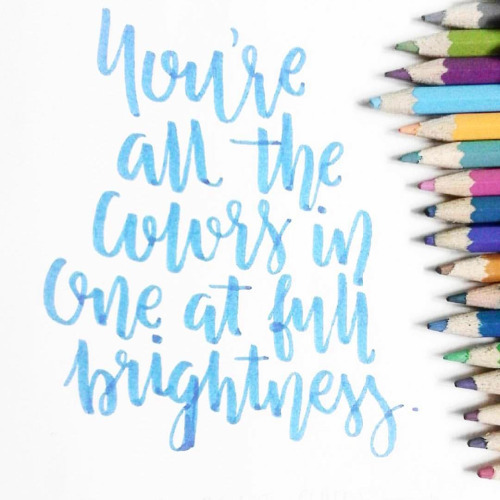 You're
all the
colors in
one at full
brightness.